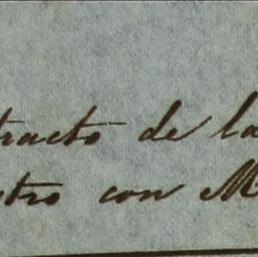 tracto de la
stro con M